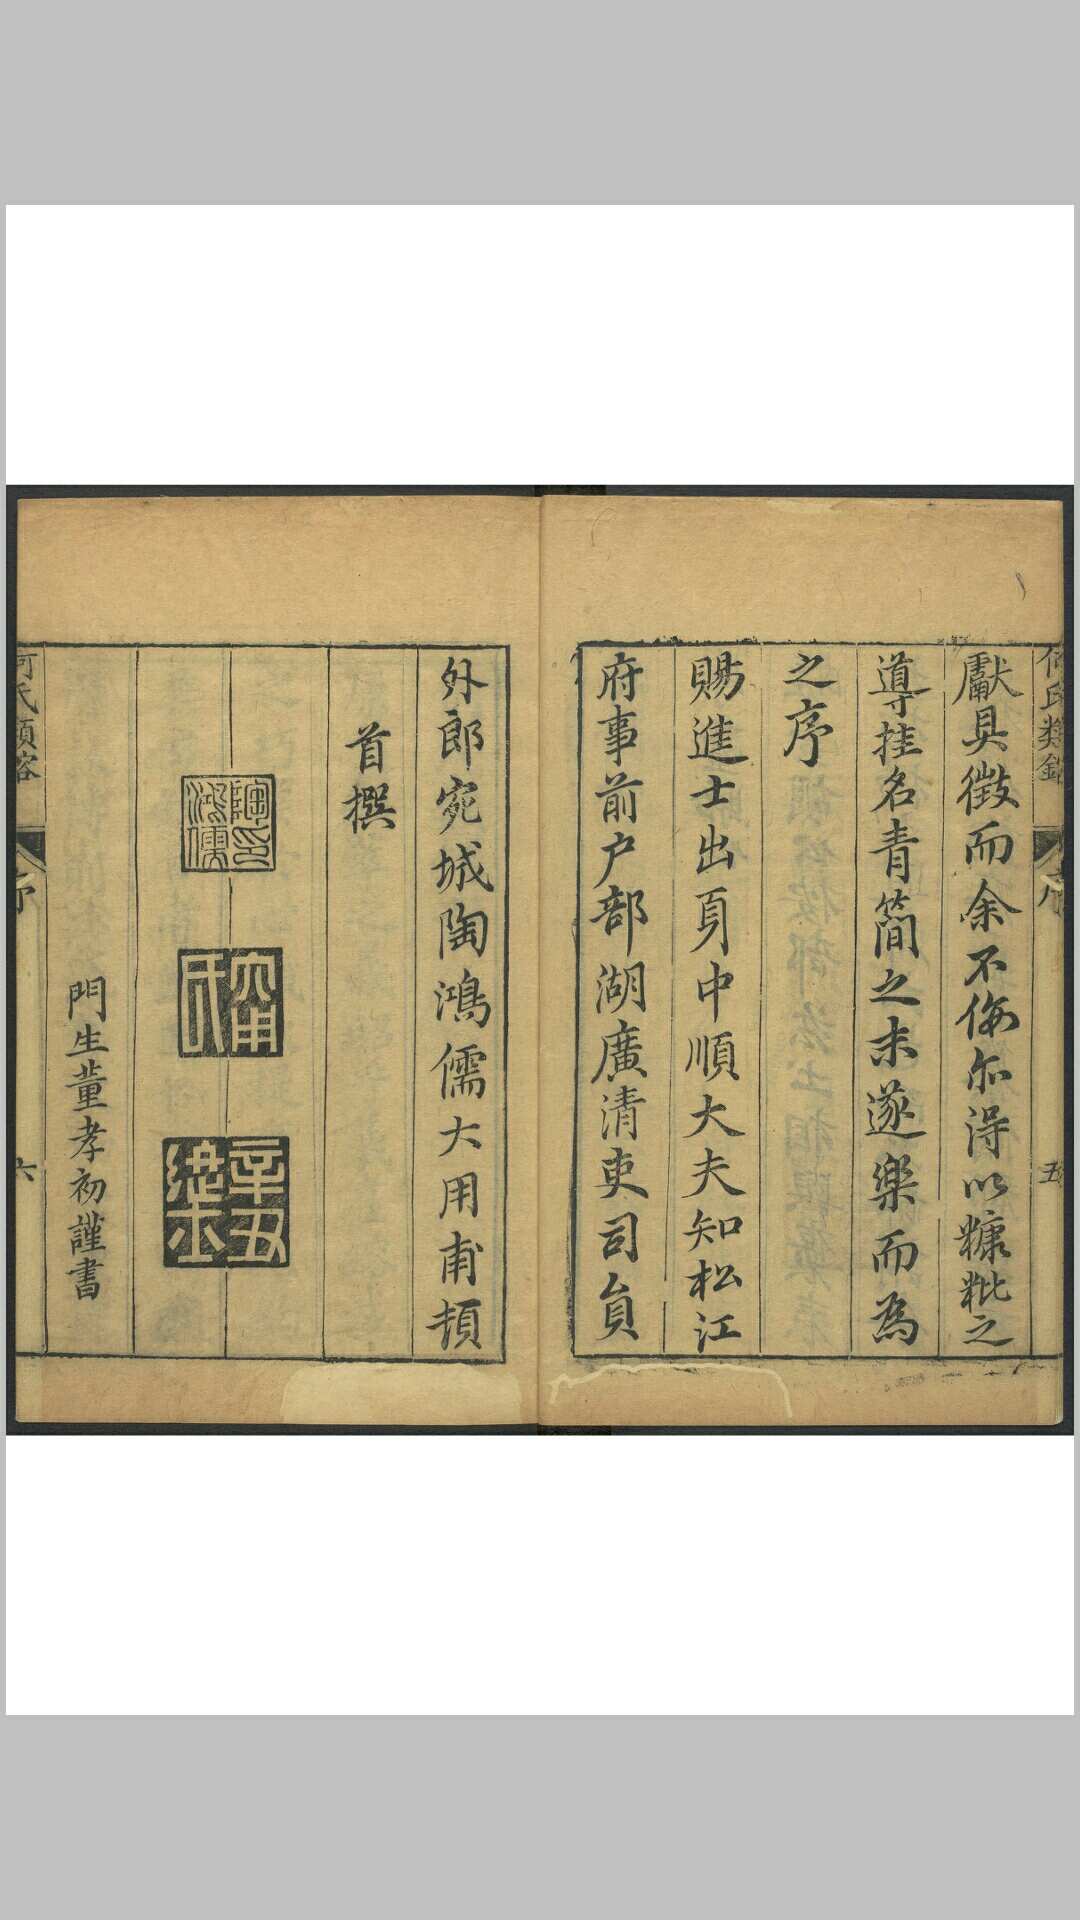 何氏類鎔
序
五
獻具徵而余不侮亦得以糠粃之
導挂名青簡之末遂樂而為
之序
賜進士出身中順大夫知松江
府事前户部湖廣清吏司員
外郎宛城陶鴻儒大用甫頓
首撰
陶鴻儒印
大用氏
辛丑進士
門生董孝初謹書
何氏類鎔
序
六